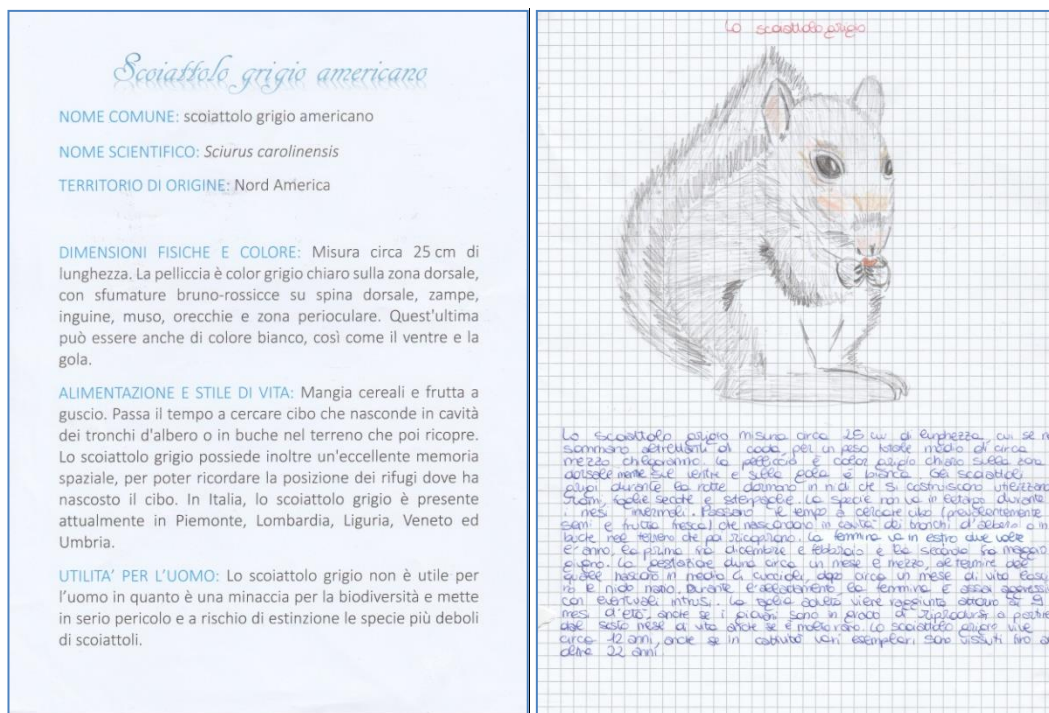 Scoiattolo grigio americano
NOME COMUNE: scoiattolo grigio americano
NOME SCIENTIFICO: Sciurus carolinensis
TERRITORIO DI ORIGINE: Nord America
DIMENSIONI FISICHE E COLORE: Misura circa 25 cm di
lunghezza. La pelliccia è color grigio chiaro sulla zona dorsale,
con sfumature bruno-rossicce su spina dorsale, zampe,
inguine, muso, orecchie e zona perioculare. Quest'ultima
può essere anche di colore bianco, così come il ventre e la
gola.
ALIMENTAZIONE E STILE DI VITA: Mangia cereali e frutta a
guscio. Passa il tempo a cercare cibo che nasconde in cavità
dei tronchi d'albero o in buche nel terreno che poi ricopre.
Lo scoiattolo grigio possiede inoltre un'eccellente memoria
spaziale, per poter ricordare la posizione dei rifugi dove ha
nascosto il cibo. In Italia, lo scoiattolo grigio è presente
attualmente in Piemonte, Lombardia, Liguria, Veneto ed
Umbria.
UTILITA' PER L'UOMO: Lo scoiattolo grigio non è utile per
l'uomo in quanto è una minaccia per la biodiversità e mette
in serio pericolo e a rischio di estinzione le specie più deboli
di scoiattoli.
Lo scoiattolo grigio
Lo scoiattolo grigio misura circa 25 cm di lunghezza, cui se ne
sommano altrettanti di coda, per un peso totale medio di circa
mezzo chilogrammo. La pelliccia è color grigio chiaro sulla zona
dorsale mente sul ventre e sulla gola è bianca. Gli scoiattoli
grigi durante la notte dormono in nidi che si costruiscono utilizzando
rami, foglie secche e sterpaglie. La specie non va in letargo durante
i mesi invernali. Passano il tempo a cercare cibo (prevalentemente
semi e frutta fresca) che nascondono in cavità dei tronchi d'albero o in
buche nel terreno che poi ricoprono. La femmina va in estro due volte
l'anno, la prima fra dicembre e febbraio e la seconda fra maggio
giugno. La gestazione dura circa un mese e mezzo, al termine del
quale nascono in media 4 cuccioli, dopo circa un mese di vita
il nido. Durante l'allattamento la femmina è assai
con eventuali intrusi. La adulta viene raggiunta attorno ai 9
mesi d'età, anche se i giovani sono in grado di riprodursi a partire
dal sesto mese di vita anche se è molto raro. Lo scoiattolo grigio vive
circa 12 anni, anche se in cattività vari esemplari sono vissuti fino a
oltre 22 anni.